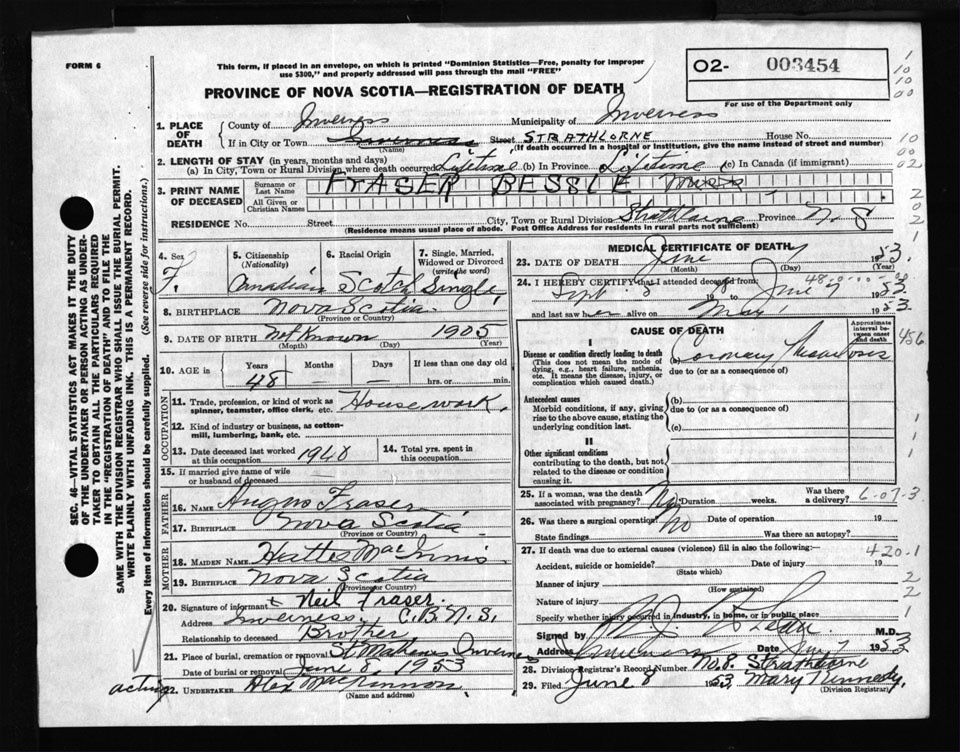 FORM 6
This form, if placed in an envelope, on which is printed "Dominion Statistics—Free, penalty for improper
use $300," and properly addressed will pass through the mail "FREE"
O2- 003454
For use of the Department only
PROVINCE OF NOVA SCOTIA—REGISTRATION OF DEATH
1. PLACE OF DEATH
County of Inverness Municipality of Inverness
If in City or Town Inverness Street STRATHLORNE House No.
(Name) (If death occurred in a hospital or institution, give the name instead of street and number)
2. LENGTH OF STAY (in years, months and days)
(a) In City, Town or Rural Division where death occurred Lifetime (b) In Province Lifetime (c) In Canada (if immigrant)
3. PRINT NAME OF DECEASED
Surname or Last Name FRASER BESSIE
All Given or Christian Names
RESIDENCE No. Street City, Town or Rural Division Strathlorne Province N. S
(Residence means usual place of abode. Post Office Address for residents in rural parts not sufficient)
4. Sex F.
5. Citizenship (Nationality) Canadian
6. Racial Origin Scotch
7. Single, Married, Widowed or Divorced (write the word) Single
8. BIRTHPLACE Nova Scotia
(Province or Country)
9. DATE OF BIRTH Not Known 1905
(Month) (Day) (Year)
10. AGE in Years 48 Months — Days — If less than one day old hrs. or min.
OCCUPATION
11. Trade, profession, or kind of work as spinner, teamster, office clerk, etc. Housework.
12. Kind of industry or business, as cotton-mill, lumbering, bank, etc.
13. Date deceased last worked at this occupation 1948
14. Total yrs. spent in this occupation
15. If married give name of wife or husband of deceased
FATHER
16. Name Angus Fraser
17. Birthplace Nova Scotia
(Province or Country)
MOTHER
18. Maiden Name MacInnis
19. Birthplace Nova Scotia
(Province or Country)
20. Signature of informant x Neil Fraser.
Address Inverness, C.B.N.S.
Relationship to deceased Brother
21. Place of burial, cremation or removal Inverness
Date of burial or removal June 8, 1953
acting
22. UNDERTAKER Alex MacKinnon
(Name and address)
MEDICAL CERTIFICATE OF DEATH
23. DATE OF DEATH June 7 1953.
(Month) (Day) (Year)
24. I HEREBY CERTIFY that I attended deceased from:
Sept 48 to June 7 1953
and last saw her alive on May 1953.
CAUSE OF DEATH
Approximate interval between onset and death
I
Disease or condition directly leading to death
(This does not mean the mode of dying, e.g., heart failure, asthenia, etc. It means the disease, injury, or complication which caused death.)
(a) Coronary Thrombosis
due to (or as a consequence of)
Antecedent causes
Morbid conditions, if any, giving rise to the above cause, stating the underlying condition last.
(b)
due to (or as a consequence of)
(c)
II
Other significant conditions
contributing to the death, but not related to the disease or condition causing it.
25. If a woman, was the death associated with pregnancy? No Duration weeks. Was there a delivery?
6-07-3
26. Was there a surgical operation? No Date of operation 19
State findings Was there an autopsy?
27. If death was due to external causes (violence) fill in also the following:—
420.1
Accident, suicide or homicide? Date of injury 19
(State which)
Manner of injury
(How sustained)
Nature of injury
Specify whether injury occurred in industry, in home, or in public place
Signed by M.D.
Address Inverness Date June 7 1953
28. Division Registrar's Record Number No. 8. Strathlorne
29. Filed June 8 1953 Mary Kennedy.
(Division Registrar)
SEC. 46—VITAL STATISTICS ACT MAKES IT THE DUTY
OF THE UNDERTAKER OR PERSON ACTING AS UNDER-
TAKER TO OBTAIN ALL THE PARTICULARS REQUIRED
IN THE "REGISTRATION OF DEATH" AND TO FILE THE
SAME WITH THE DIVISION REGISTRAR WHO SHALL ISSUE THE BURIAL PERMIT.
WRITE PLAINLY WITH UNFADING INK. THIS IS A PERMANENT RECORD.
Every item of information should be carefully supplied. (See reverse side for instructions.)